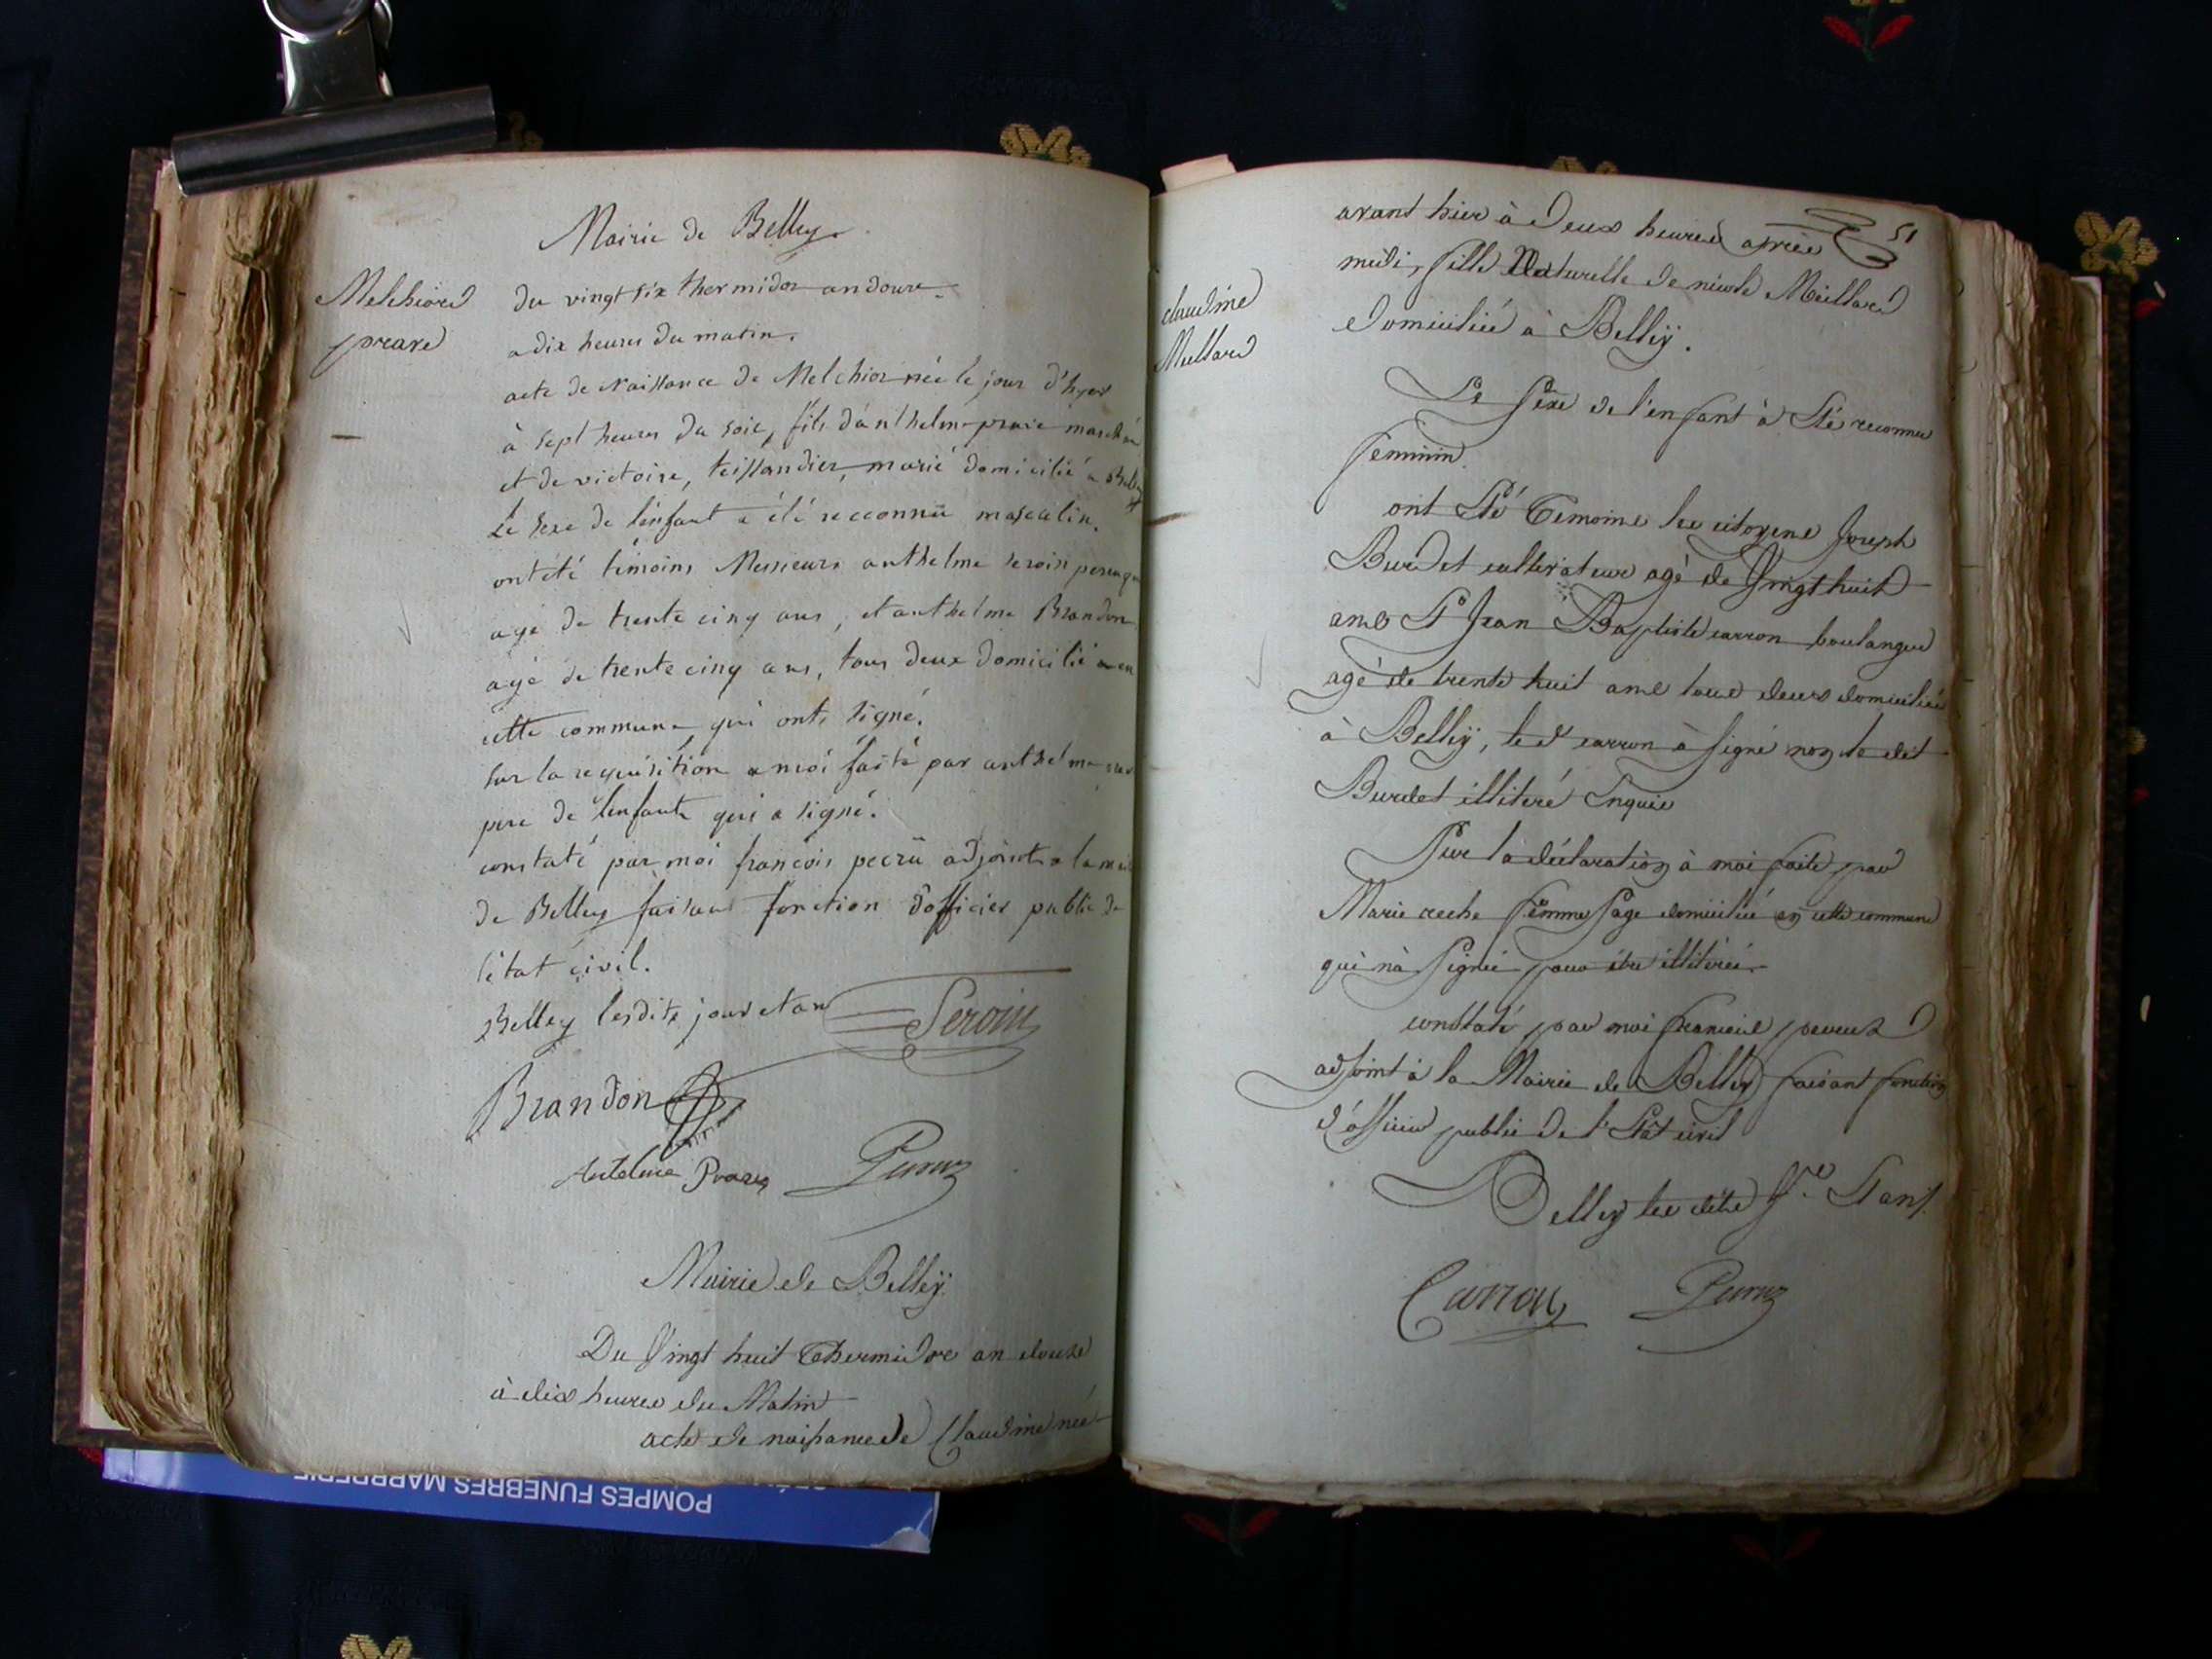 Mairie de Belley.
Melchiord
prave
du vingt six thermidor an douze.
a dix heures du matin.
acte de naissance de Melchior née le jour d'hyer
à sept heures du soir, fils d'anthelme prave
et de victoire, teissandier, marié domicilié a Belley
Le sexe de l'enfant a été reconnu masculin.
ont été témoins Messieurs anthelme seroin
agé de trente cinq ans, et anthelme Brandon
agé de trente cinq ans, tous deux domicilié en
cette commune qui ont signé.
sur la requisition a moi faite par anthelme
pere de l'enfant qui a signé.
constaté par moi françois pecrü adjoint a la
de Belley faisant fonction d'officier public de
l'état civil.
Belley lesdits jour et an
Seroin
Brandon
Antelme Prave
Mairie de Belleÿ
Du Vingt huit Thermidore an douze
à dix heures du Matin
acte de naissance de Claudine née
51
avant hier à deux heures après
midi, fille Naturelle de nicole Meillard
domiciliée à Belleÿ.
claudine
Mellard
Le Sexe de l'enfant à Eté reconnu
feminin.
ont Eté Temoins les citoyens Joseph
Burdet cultivateur agé de Vingt huit
ans Et Jean Baptiste carron boulanger
agé de trente huit ans tous deux domiciliés
à Belleÿ, le d carron à signé non le dit
Burdet illiteré Enquis
Sur la déclaration à moi faite par
Marie reche femme sage domiciliée en cette commune
qui n'à signé pour être illiterée
constaté par moi francois
adjoint à la Mairie de Belley faisant fonction
d'officier public de l'Etat civil
Belley les dits Jr. Et an
Carron